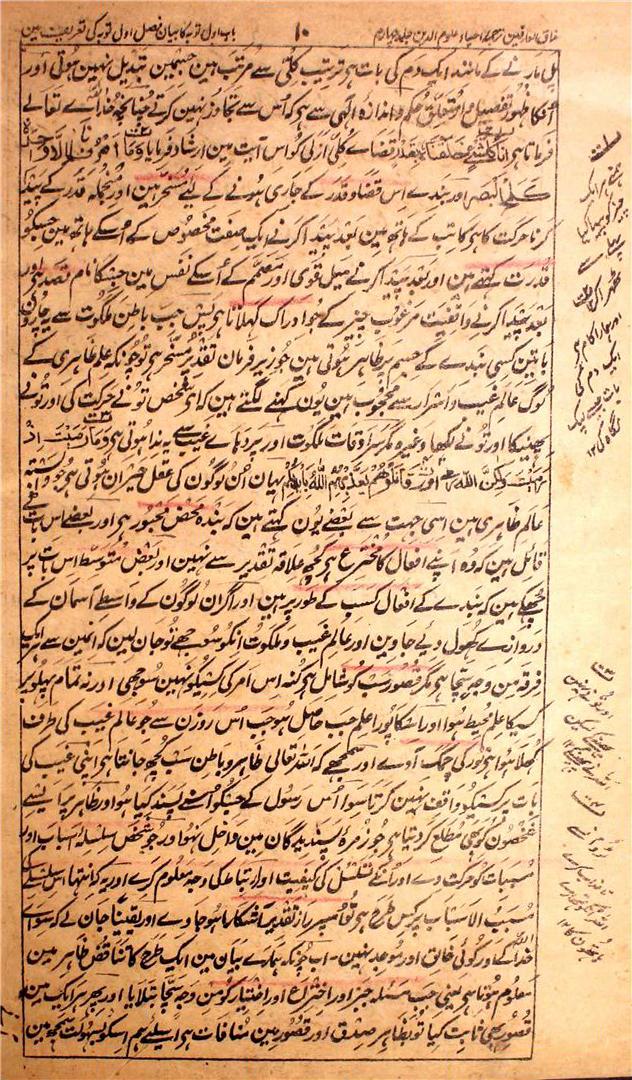 مذاق العارفین ترجمہ احیاء علوم الدین جلد چہارم
۱۰
باب اول توبہ کا بیان فصل اول توبہ کی تعریف مین
پل مارنے کے مانند ایک دم کی بات ہی ترتیب کلّی سے مرتب ہین جسمین تبدیل نہین ہوتی اور
اُنکا ظہور تفصیل اور تعلق حکم و اندازہ الٰہی سے ہی کہ اُس سے تجاوز نہین کرتے چنانچہ خداے تعالیٰ
فرماتا ہی انا کل شیء خلقناہ بقدر قضاے کلّی ازلی کو اس آیت مین ارشاد فرمایا وما امرنا الا واحدۃ
کلمح بالبصر اور بندے اس قضا و قدر کے جاری ہونے کے لئے مسخر ہین اور منجملہ قدر کے پیدا
کرنا حرکت کا ہی کاتب کے ہاتھ مین بعد پیدا کرنے ایک صفت مخصوص کے اُسکے ہاتھ مین جسکو
قدرت کہتے ہین اور بعد پیدا کرنے میل قوی اور مصمم کے اُسکے نفس مین جسکا نام قصد ہی اور
بعد پیدا کرنے واقفیت مرغوب چیز کے جو ادراک کہلاتا ہی پس جب باطن ملکوت سے چارون
باتین کسی بندے کے جسم پر ظاہر ہوتی ہین جو زیر فرمان تقدیر مسخر ہی تو چونکہ علم ظاہری کے
لوگ عالم غیب و اسرار سے محجوب ہین یون کہنے لگتے ہین کہ ای شخص تو نے حرکت کی اور تو نے
پھینکا اور تو نے لکھا وغیرہ مگر سرادقات ملکوت اور پردہاے غیب سے یہ ندا ہوتی ہی وما رمیت اذ
رمیت ولکن اللہ رمی اور قاتلوھم یعذبھم اللہ بایدیکم یہان اُن لوگون کی عقل حیران ہوتی ہی جو وابستہ
عالم ظاہری ہین اسی جہت سے بعضے یون کہتے ہین کہ بندہ محض مجبور ہی اور بعضے اس بات کے
قائل ہین کہ وہ اپنے افعال کا مخترع ہی کچھ علاقہ تقدیر سے نہین اور بعض متوسط اس بات پر
جھکے ہین کہ بندے کے افعال کسب کے طور پر ہین اور اگر ان لوگون کے واسطے آسمان کے
دروازے کھول دیے جاوین اور عالم غیب و ملکوت انکو سوجھے تو جان لین کہ انمین سے ہر ایک
فرقہ من وجہ سچا ہی مگر قصور سب کو شامل ہی کُنہ اس امر کی کسیکو نہین سوجھی اور نہ تمام پہلو پر
کسیکا علم محیط ہوا اور اسکا پورا علم جب حاصل ہو جب اس روزن سے جو عالم غیب کی طرف
کھلا ہوا ہی نور کی چمک آوے اور سمجھے کہ اللہ تعالی ظاہر و باطن سب کچھ جانتا ہی اپنی غیب کی
بات پر کسیکو واقف نہین کرتا سوا اُس رسول کے جسکو اُسنے پسند کیا ہو اور ظاہر پر ایسے
شخصون کو بھی مطلع کر دیتا ہی جو زمرۂ پسندیدگان مین داخل نہو اور جو شخص سلسلۂ اسباب اور
مسببات کو حرکت دے اور اُنکے تسلسل کی کیفیت اور ارتباط کی وجہ معلوم کرے اور یہ کہ انتہا اس سلسلے کی
مسبب الاسباب پر کس طرح ہی تو اُسپر راز تقدیر آشکارا ہو جاوے اور یقیناً جان لے کہ سواے
خداے تعالیٰ کے اور کوئی خالق اور موجد نہین - اب چونکہ ہمارے بیان مین ایک طرح کا تناقض ظاہر مین
معلوم ہوتا ہی یعنی جب مسئلہ جبر اور اختراع اور اختیار کو من وجہ سچا بتلایا اور پھر ہر ایک مین
قصور بھی ثابت کیا تو بظاہر صدق اور قصور مین منافات ہی اسلیے ہم اسکو بسہولت سمجھ مین
ہمنے ہر ایک
چیز کو پیدا کیا
پہلے سے
ٹھہرا کر ۱۲
اور ہمارا کام یہی
ایک دم کی
بات ہی
نگاہ کی ۱۲